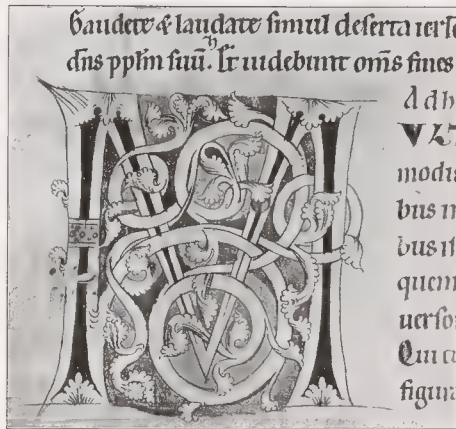 Gaudete & laudate simul deserta ierſ
dn̄s pp̄lm ſuū. Et uidebunt om̄s fines
M
Adh
VLT
modis
bus in
bus iſt
quem
uerſo
Qui
figura